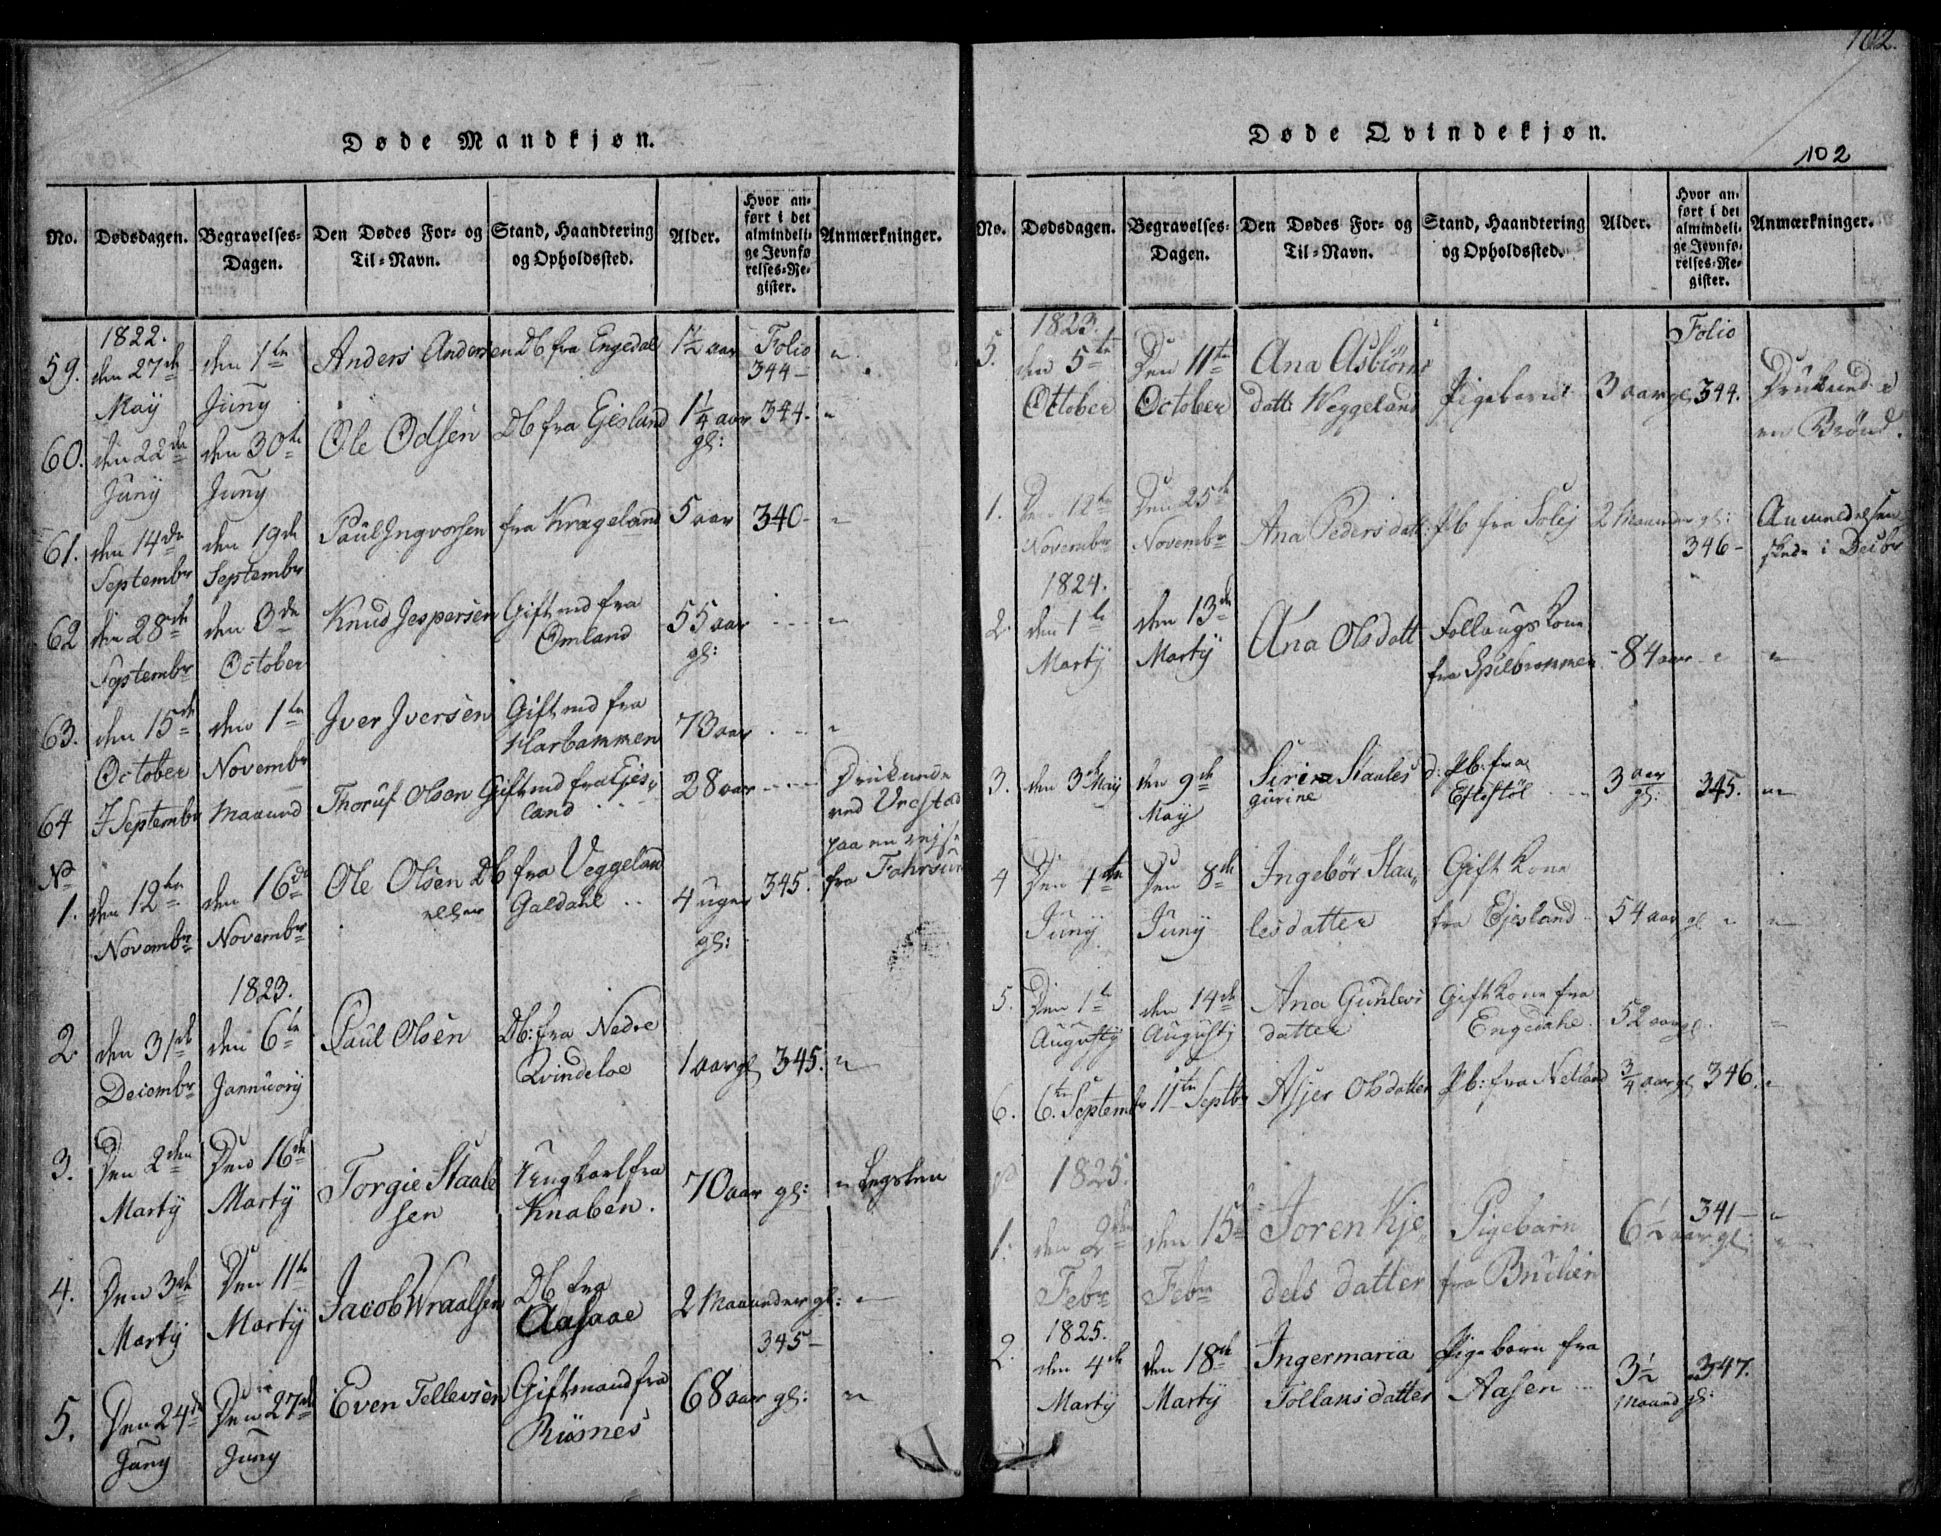 102.
Døde Mandkjøn.
No. Dødsdagen. Begravelses-Dagen. Den Dødes For- og Til-Navn. Stand, Haandtering og Opholdssted. Alder. Hvor anført i det almindelige Jevnførelses-Register. Anmærkninger.
1822.
59. den 27de May den 1te Juny Anders Andersen Db fra Engedal 1½ aar Folio 344 - "
60. den 22de Juny den 30te Juny Ole Odsen Db fra Ejesland 1¼ aar gl: 344. "
61. den 14de September den 19de September Paul Ingvorsen fra Krageland 5 aar 340 - "
62 den 28de September den 3de October Knud Jespersen Giftmd fra Omland 55 aar gl: - - - "
63. den 15de October den 1te Novembr Iver Iversen Giftmd fra 73 aar . - "
64 I September Maaned Thoruf Olsen Giftmd fra Ejesland 28 aar - - - Druknede ved paa en rejse fra Fahrsund
No
1. den 12te Novembr den 16de Novembr Ole Olsen Db fra Veggeland eller Galdahl 4 uger gl: 345.
1823.
2 den 31te Decembr den 6te Januarij Paul Olsen Db: fra Nedre Qvindeloe 1 aar gl 345. "
3. Den 2den Martij Den 16de Martij Torgie Staalesen Ungkarl fra Knaben. 70 aar gl: " Legslem
4. Den 3de Martij Den 11te Martij Jacob Wraalsen Db fra Aasaae 2 Maaneder gl: 345 - "
5. Den 24de Juny Den 27de Juny Even Tellevsen Giftmand fra Risnes 68 aar gl: "
Døde Qvindekjøn.
102
No. Dødsdagen. Begravelses-Dagen. Den Dødes For- og Til-Navn. Stand, Haandtering og Opholdssted. Alder. Hvor anført i det almindelige Jevnførelses-Register. Anmærkninger.
1823.
5. den 5te October Den 11te October Ana Asbiørns datt: Weggeland Pigebarn 3 aar gl Folio 344. Druknede i en Brønd.
1. Den 12te Novembr Den 25de Novembr Ana Peders datt: Pb fra Solej 2 Maaneder gl: 346 - Anmeldelsen skede i Decbr
1824.
2. den 1te Martij den 13de Martij Ana Olsdatt Follaugskone fra 84 aar " "
3. den 3de May den 9de May Siri Staales d: gurine Pb: fra Eftestøl 3 aar gl: 345. "
4 Den 4de Juny Den 8de Juny Ingebor Staalesdatter Gift Kone fra Ejesland 54 aar gl " "
5. Den 1te Augustij den 14de Augustij Ana Gunlevs datter Gift Kone fra Engedahl 52 aar gl. "
6. 6te Septembr 11te Septbr Asjer Olsdatter Pb: fra Netland ¾ aar gl 346. "
1825.
1. den 2den Febr den 15de Febr Joren Kjedels datter Pigebarn fra 6½ aar gl: 341 - "
1825.
2. den 4de Martij den 18de Martij Ingermaria Tollansdatter Pigebarn fra Aasen 3½ Maaned gl: 347.